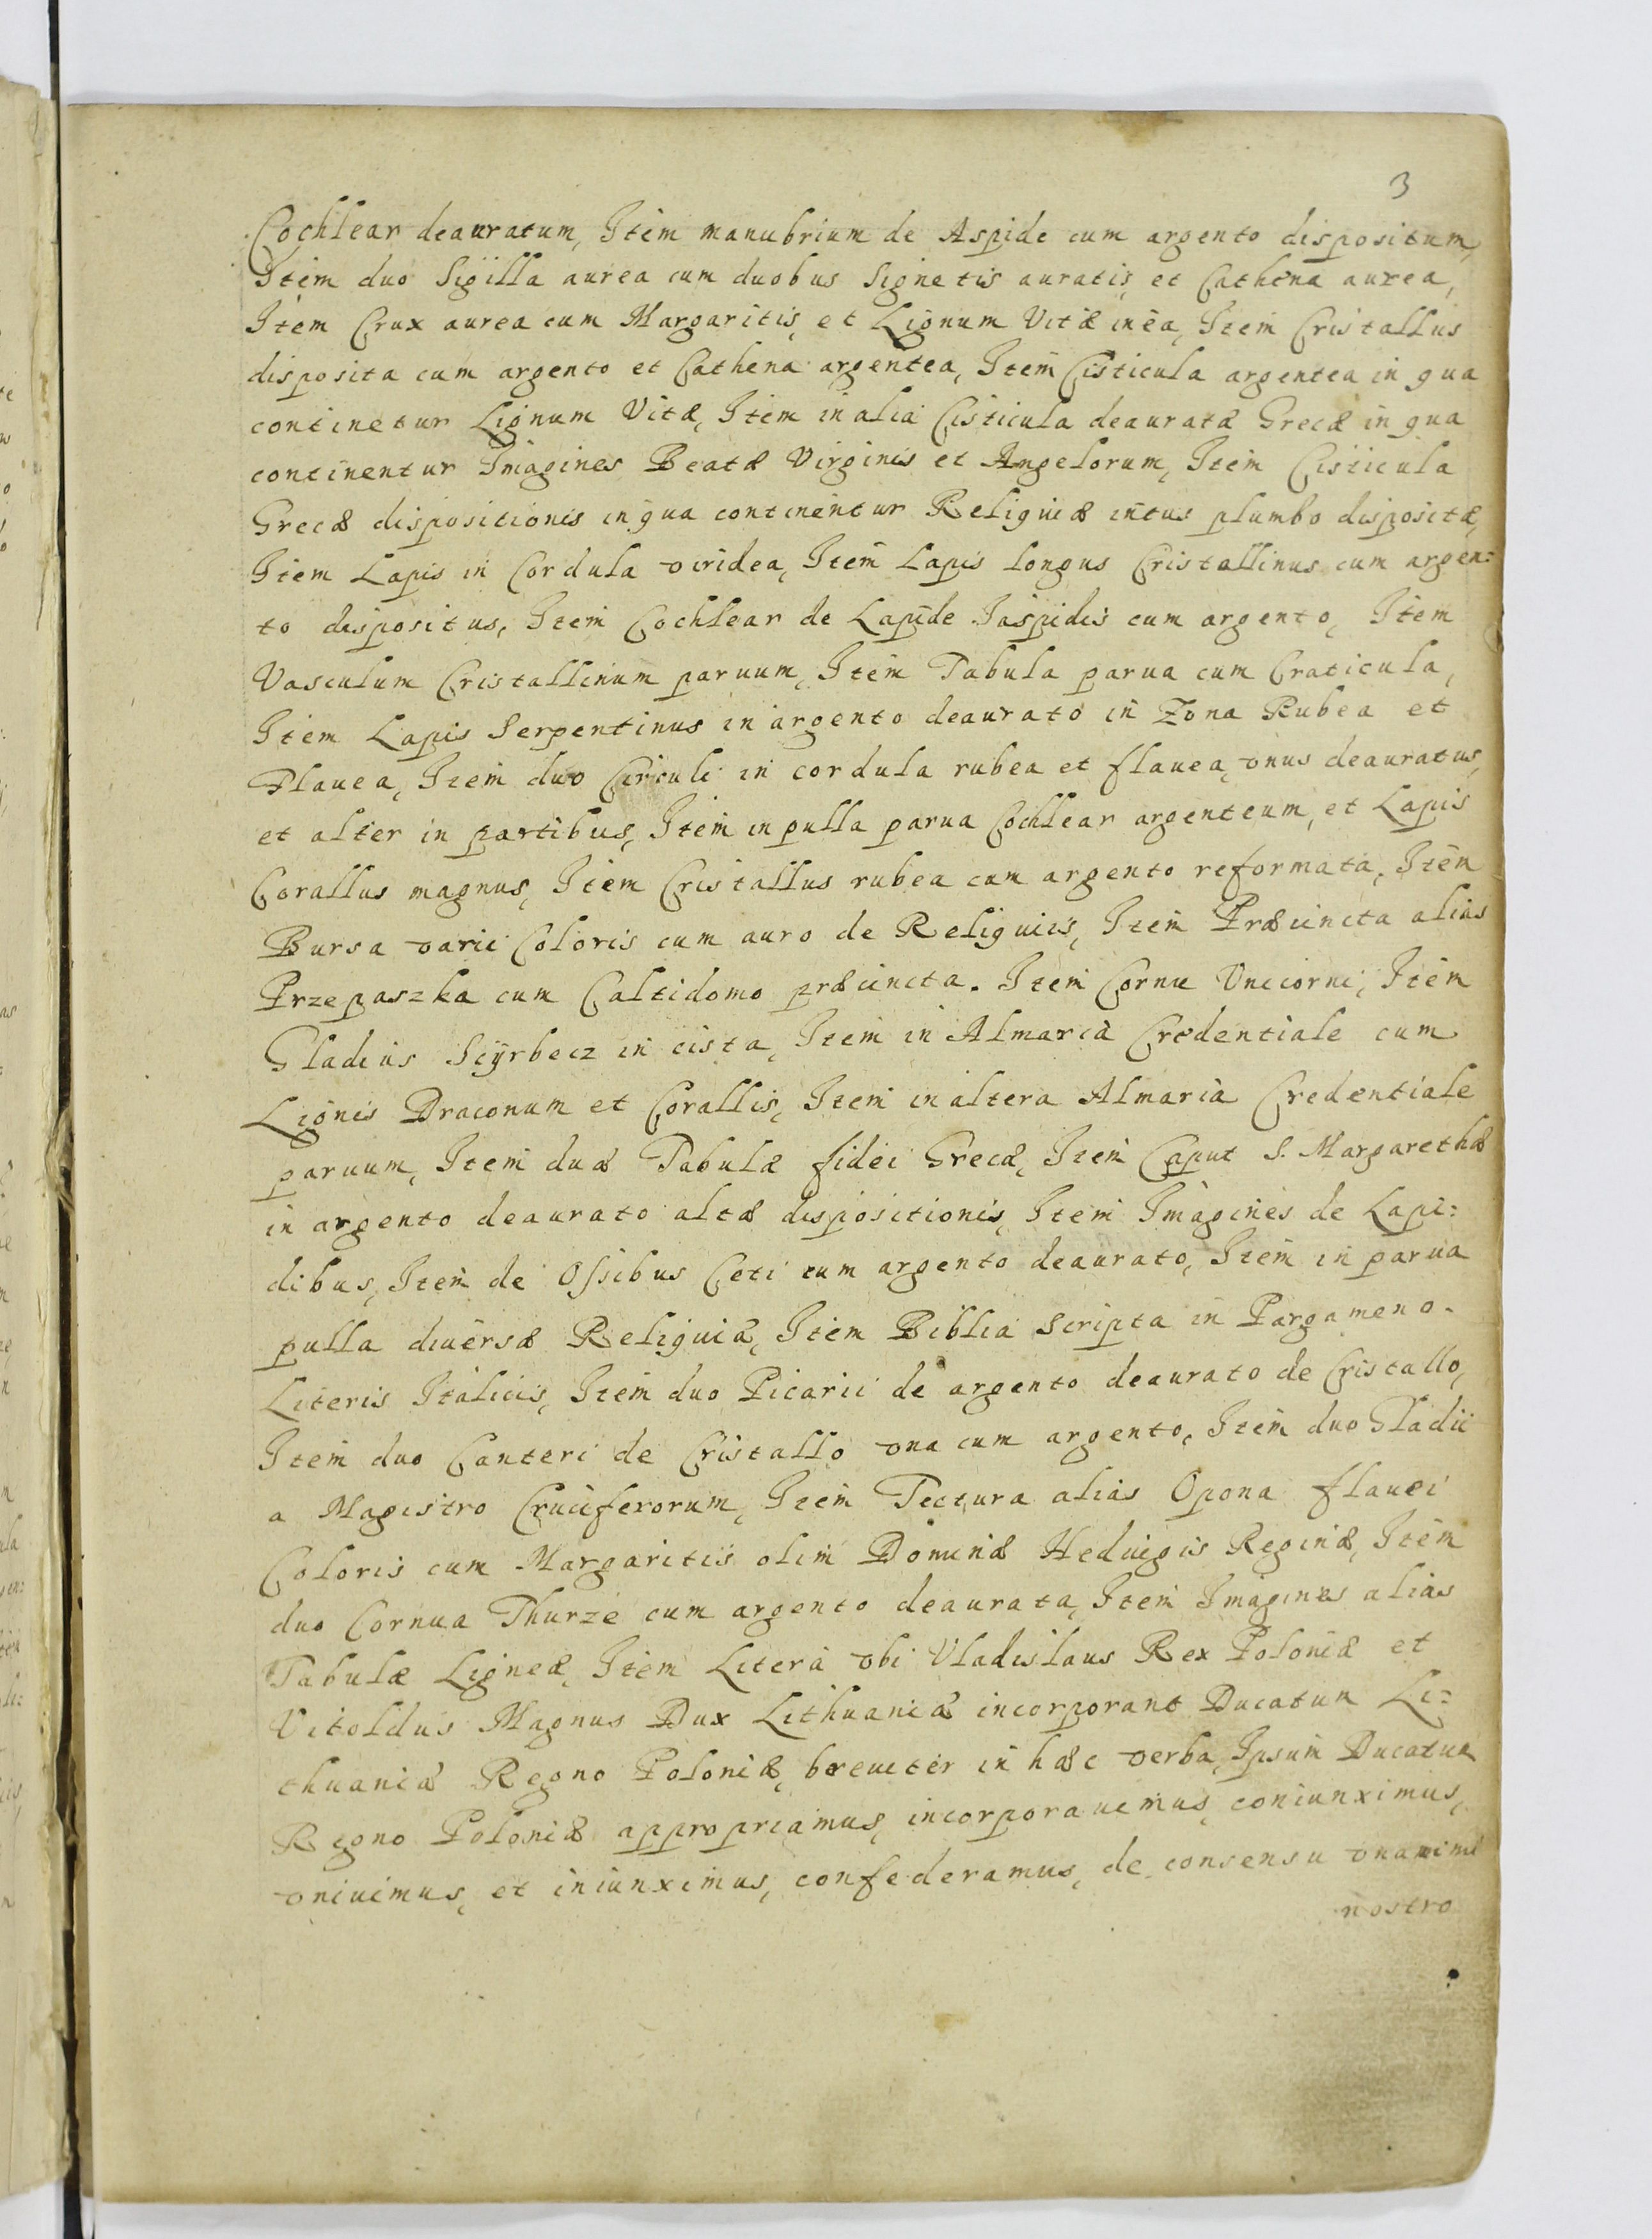 3
Cochlear deauratum, Item manubrium de Aspide cum argento dispositum,
Item duo Sigilla aurea cum duobus Signetis auratis, et Cathena aurea,
Item Crux aurea cum Margaritis, et Lignum Vitæ in ea, Item Cristallus
disposita cum argento et Cathena argentea, Item Cisticula argentea in qua
continetur Lignum Vitæ, Item in alia Cisticula deaurata Grecæ in qua
continentur Imagines Beatæ Virginis et Angelorum, Item Cisticula
Grecæ dispositionis in qua continentur Reliquiæ intus plumbo dispositæ,
Item Lapis in Cordula viridea, Item Lapis longus Cristallinus cum argen:
to dispositus, Item Cochlear de Lapide Iaspidis cum argento, Item
Vasculum Cristallinum paruum, Item Tabula parua cum Craticula,
Item Lapis Serpentinus in argento deaurato in Zona Rubea et
Flauea, Item duo Circuli in cordula rubea et flauea, vnus deauratus,
et alter in partibus, Item in pulla parua Cochlear argenteum, et Lapis
Corallus magnus, Item Cristallus rubea cum argento reformata, Item
Bursa varii Coloris cum auro de Reliquiis, Item Præcincta alias
Przepaszka cum Caltidomo præcincta. Item Cornu Vnicorni, Item
Gladius Sczyrbecz in cista, Item in Almaria Credentiale cum
Lignis Draconum et Corallis, Item in altera Almaria Credentiale
paruum, Item duæ Tabulæ fidei Grecæ, Item Caput S. Margarethæ
in argento deaurato altæ dispositionis, Item Imagines de Lapi:
dibus, Item de Ossibus Ceti cum argento deaurato, Item in parua
pulla diuersæ Reliquiæ, Item Biblia Scripta in Pargameno.
Literis Italicis, Item duo Picarii de argento deaurato de Cristallo,
Item duo Canteri de Cristallo vna cum argento, Item duo Gladii
a Magistro Cruciferorum, Item Tectura alias Opona flauei
Coloris cum Margaritis olim Dominæ Heduigis Reginæ, Item
duo Cornua Thurze cum argento deaurata, Item Imagines alias
Tabulæ Ligneæ, Item Litera vbi Vladislaus Rex Poloniæ et
Vitoldus Magnus Dux Lithuaniæ incorporant Ducatum Li:
thuaniæ Regno Poloniæ, breuiter in hæc verba, Ipsum Ducatum
Regno Poloniæ appropriamus, incorporauimus, coniunximus,
vniuimus, et iniunximus, confederamus, de consensu vnanimi
nostro